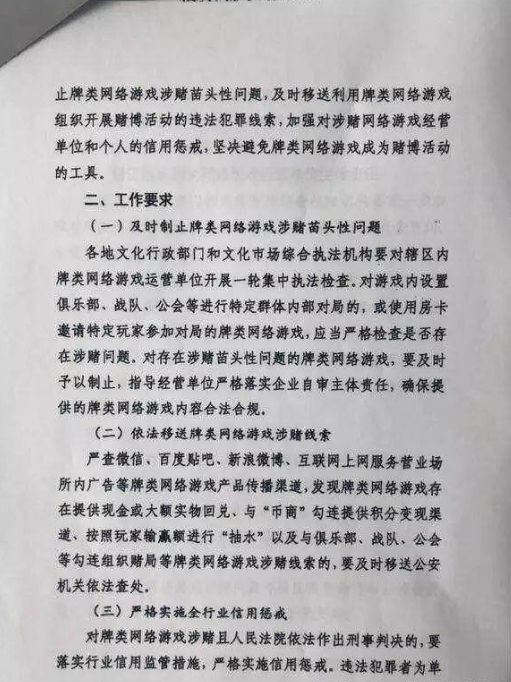 止牌类网络游戏涉赌苗头性问题,及时移送利用牌类网络游戏
组织开展赌博活动的违法犯罪线索,加强对涉赌网络游戏经营
单位和个人的信用惩戒,坚决避免牌类网络游戏成为赌博活动
的工具。
二、工作要求
(一)及时制止牌类网络游戏涉赌苗头性问题
各地文化行政部门和文化市场综合执法机构要对辖区内
牌类网络游戏运营单位开展一轮集中执法检查。对游戏内设置
俱乐部、战队、公会等进行特定群体内部对局的,或使用房卡
邀请特定玩家参加对局的牌类网络游戏,应当严格检查是否存
在涉赌问题。对存在涉赌苗头性问题的牌类网络游戏,要及时
予以制止,指导经营单位严格落实企业自审主体责任,确保提
供的牌类网络游戏内容合法合规。
(二)依法移送牌类网络游戏涉赌线索
严查微信、百度贴吧、新浪微博、互联网上网服务营业场
所内广告等牌类网络游戏产品传播渠道,发现牌类网络游戏存
在提供现金或大额实物回兑、与“币商”勾连提供积分变现渠
道、按照玩家输赢额进行“抽水”以及与俱乐部、战队、公会
等勾连组织赌局等牌类网络游戏涉赌线索的,要及时移送公安
机关依法查处。
(三)严格实施全行业信用惩戒
对牌类网络游戏涉赌且人民法院依法作出刑事判决的,要
落实行业信用监管措施,严格实施信用惩戒。违法犯罪者为单